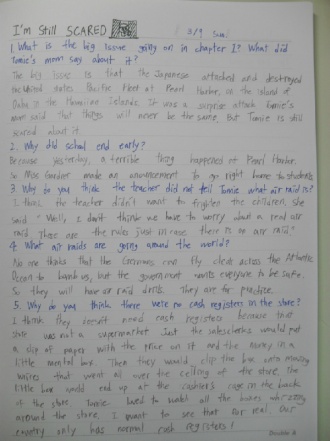 I'm Still SCARED
5/9 Sun.
1. What is the big issue going on in chapter 1? What did
Tomie's mom say about it?
The big issue is that the Japanese attacked and destroyed
the United States Pacific Fleet at Pearl Harbor, on the island of
Oahu in the Hawaiian Islands. It was a surprise attack. Tomie's
mom said that things will never be the same. But Tomie is still
scared about it.
2. Why did school end early?
Because yesterday, a terrible thing happened at Pearl Harbor.
So Miss Gardner made an announcement to go right home to students.
3. Why do you think the teacher did not tell Tomie what air raid is?
I think the teacher didn't want to frighten the children, she
said "Well, I don't think we have to worry about a real air
raid. These are the rules just in case there is an air raid."
4. What air raids are going around the world?
No one thinks that the Germans can fly clear across the Atlantic
Ocean to bomb us, but the government wants everyone to be safe.
So they will have air raid drills. They are for practice.
5. Why do you think there were no cash registers in the store?
I think they doesn't need cash registers because that
store was not a supermarket. Just the salesclerks would put
a slip of paper with the price on it and the money in a
little metal box. Then they would clip the box onto moving
wires that went all over the ceiling of the store. The
little box would end up at the cashier's cage in the back
of the store. Tomie loved to watch all the boxes whizzing
around the store. I want to see that for real. Our
country only has normal cash registers!
Double A